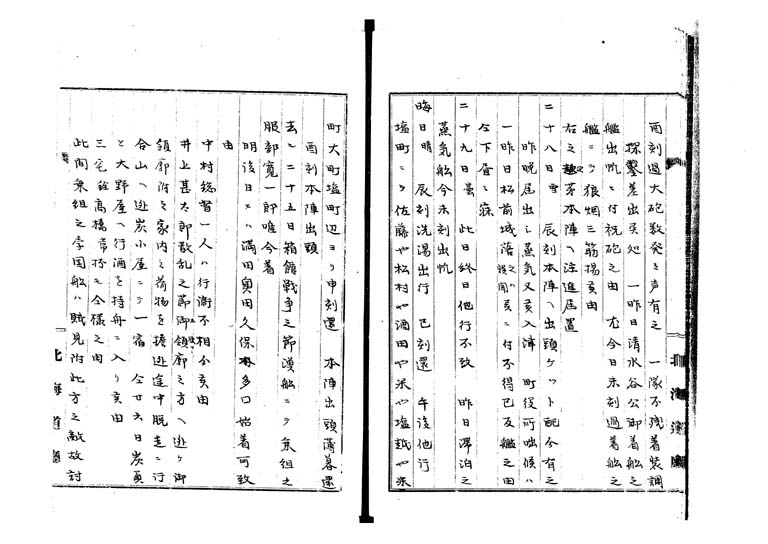 酉刻過大砲数発之声有之 一隊不残着装調
探鑿差出矣処 一昨日清水谷公御着船之
艦出帆ニ付祝砲之由 尤今日未刻過着船之
艦ニ而狼烟三筋揚矣由
右之趣茅本陣ヘ注進届置
二十八日雪 辰刻本陣ヘ出頭ケット配分有之
昨晩尾出し蒸気又矣入津 町役所咄候ハ
一昨日松前城落之模聞矣ニ付不得已反艦之由
仝下昼之寐
二十九日曇 此日終日他行不致 昨日滞泊之
蒸気船今未刻出帆
晦日晴 辰刻洗湯出行 巳刻還 午後他行
塩町ニ而佐藤や松村や酒田や米や塩越や米
町大町塩町辺ヨリ申刻還 本陣出頭薄暮還
酉刻本陣出頭
去ル二十五日箱館戦争之節漢船ニ而乗組之
服部寛一郎唯今着
明後日ニハ満田奥田久保木多口始着可致
由
中村 一人ハ行衛不相分矣由
井上甚太郎散乱之節御領廓之方ヘ逃ケ御
領廓附之家内之荷物を擔逃途中脱走ニ行
合山ヘ逃炭小屋ニ而一宿 仝廿六日炭負
と大野屋ヘ行酒を持舟ニ入リ矣由
三宅 高橋 今様之由
此間乗組之孛国船ハ賊見附此方之敵故討
北海道廳
北海道廳